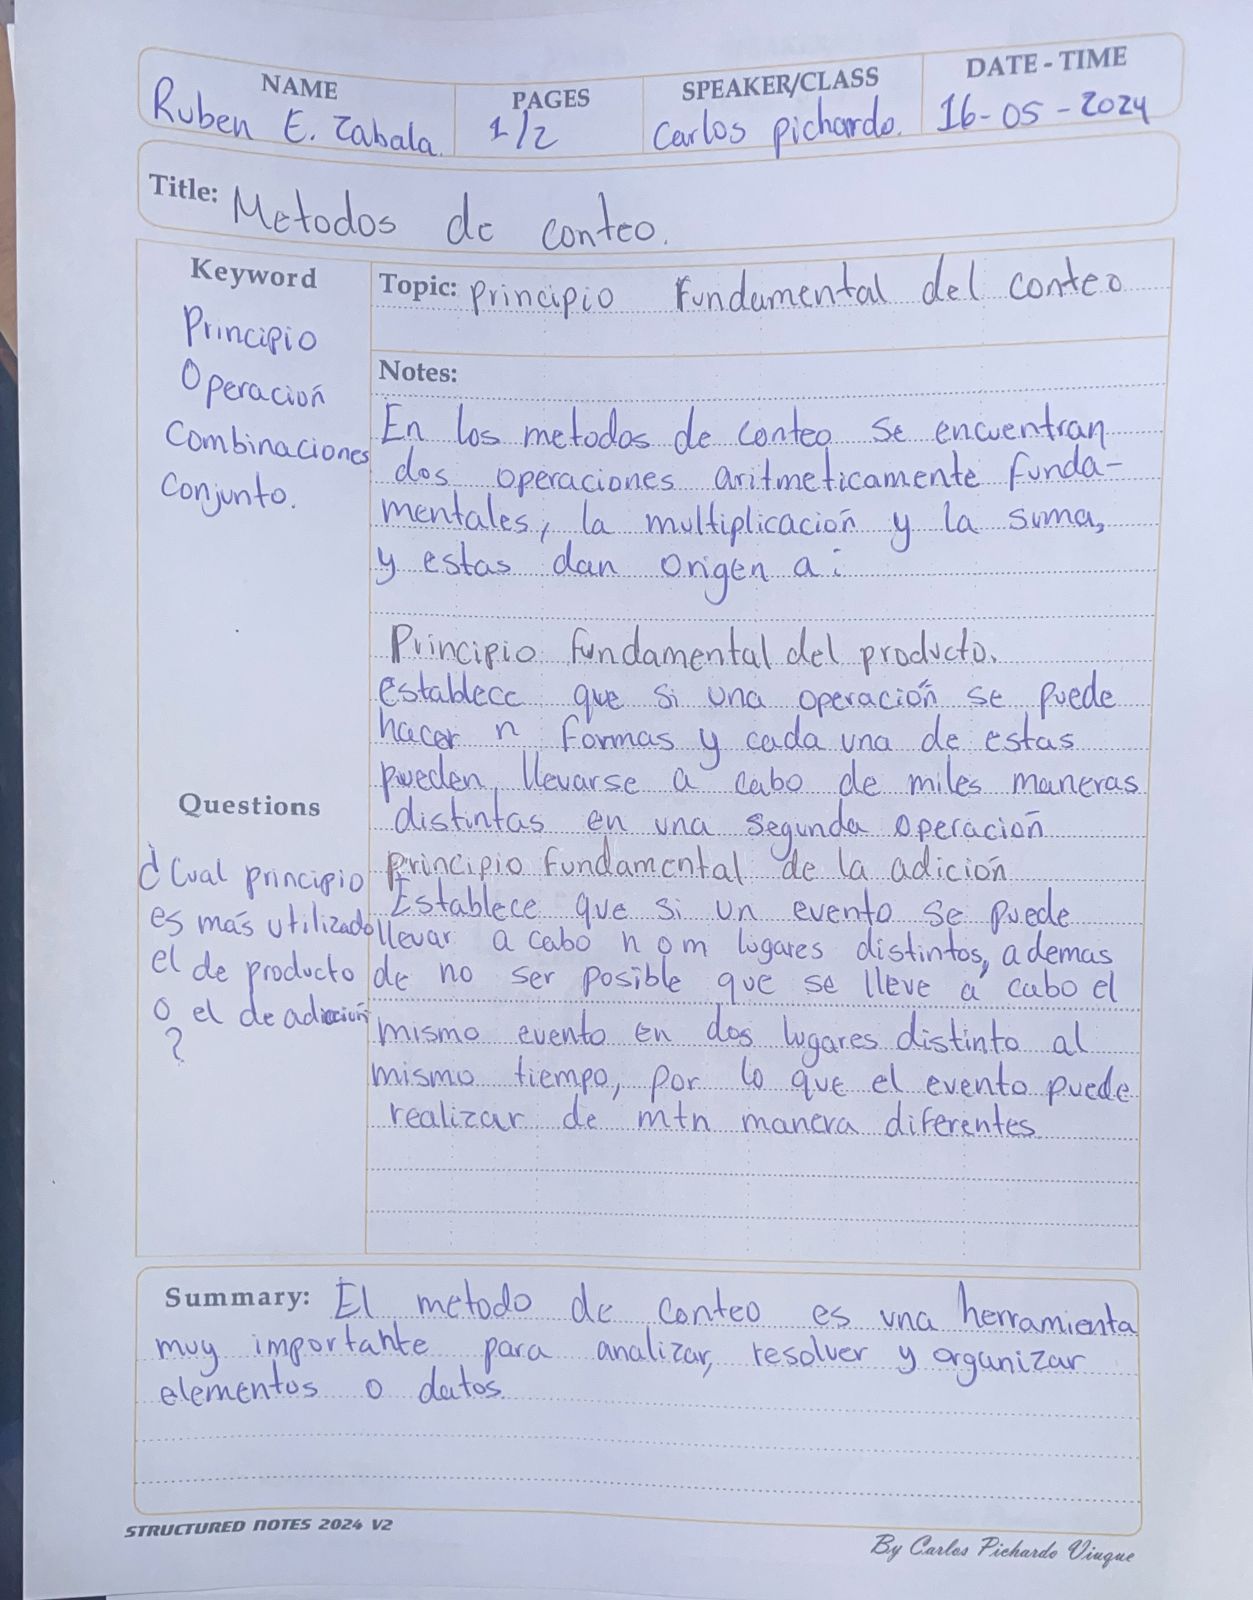 NAME
Ruben E. Zabala.
PAGES
1/2
SPEAKER/CLASS
Carlos pichardo.
DATE - TIME
16-05-2024
Title: Metodos de conteo.
Keyword
Principio
Operación
Combinaciones
Conjunto.
Topic: principio Fundamental del conteo
Notes:
En los metodos de conteo se encuentran
dos operaciones aritmeticamente funda-
mentales, la multiplicación y la suma,
y estas dan origen a:
Principio fundamental del producto.
establece que si una operación se puede
hacer n formas y cada una de estas
pueden llevarse a cabo de miles maneras
distintas en una segunda operación
principio fundamental de la adición
Establece que si un evento se puede
llevar a cabo n o m lugares distintos, ademas
de no ser posible que se lleve a cabo el
mismo evento en dos lugares distinto al
mismo tiempo, por lo que el evento puede
realizar de m+n manera diferentes
Questions
¿Cual principio
es más utilizado
el de producto
o el de adición
?
Summary: El metodo de conteo es una herramienta
muy importante para analizar, resolver y organizar
elementos o datos.
STRUCTURED NOTES 2024 V2
By Carlos Pichardo Viuque